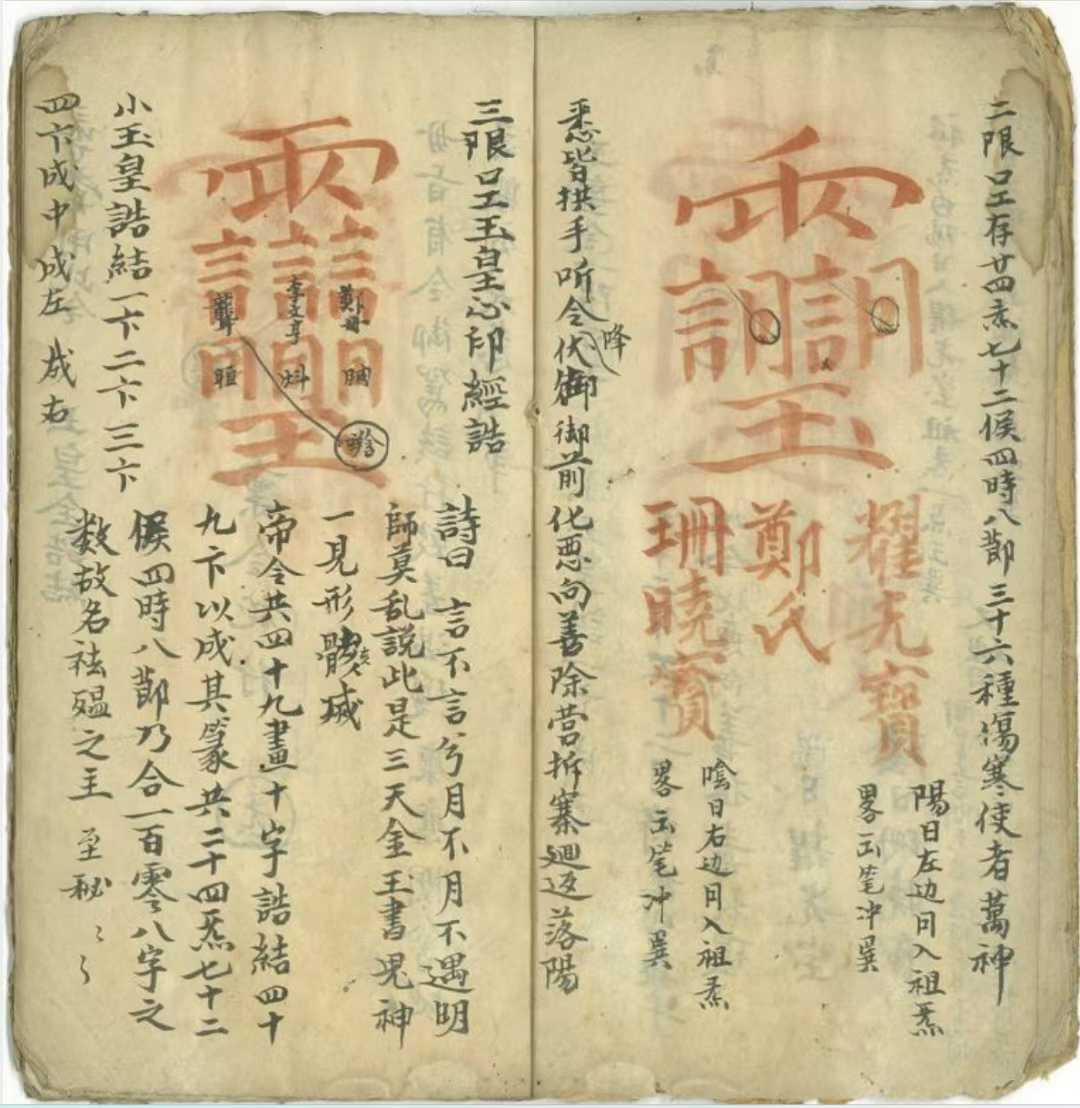 二限口工存廿四炁七十二候四時八節三十六種傷寒使者萬神
耀光寶
陽日左边日入祖炁
畧云笔冲巽
鄭氏
珊曉賓
陰日右边月入祖炁
畧云笔冲巽
悉皆拱手听令伏降御御前化恶向善除营拆寨迴返落陽
三限口工玉皇心印經誥
鄭毋
李文亨
龔
詩曰 言不言兮月不月不遇明
師莫乱説此是三天金王書鬼神
一見形骸滅
帝令共四十九畫十字誥結四十
九卞以成其篆共二十四炁七十二
候四時八節乃合一百零八字之
数故名祛瘟之主 至秘
小玉皇誥結一卞二卞三卞
四卞成中成左成右